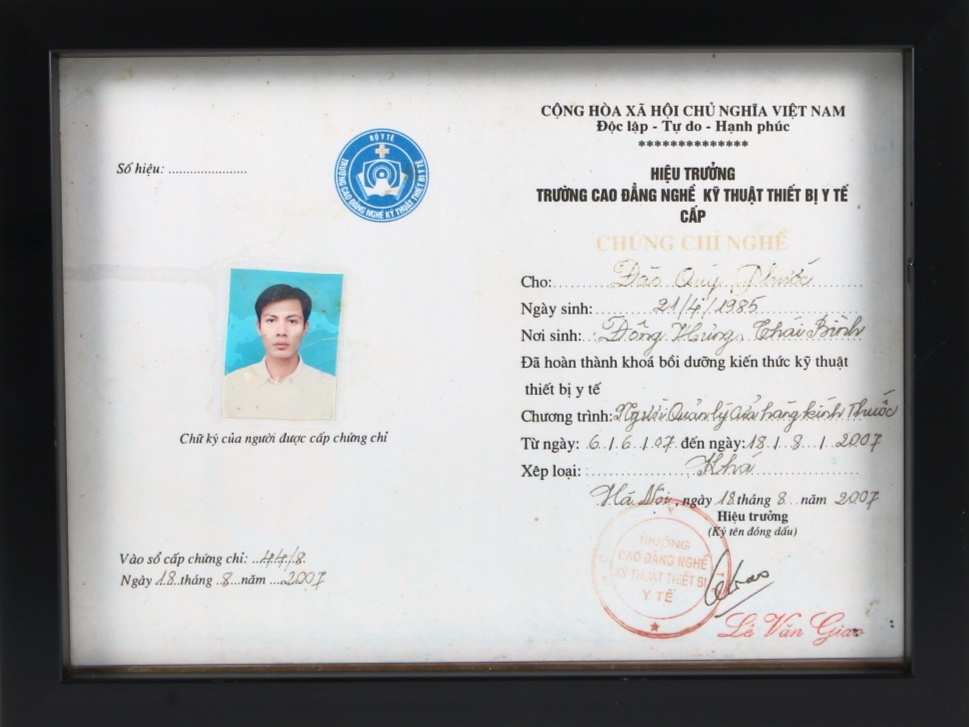 Số hiệu: ......................
BỘ Y TẾ
TRƯỜNG CAO ĐẲNG NGHỀ KỸ THUẬT THIẾT BỊ Y TẾ
Chữ ký của người được cấp chứng chỉ
Vào sổ cấp chứng chỉ: ..44/8
Ngày 18 tháng ..8...năm ...2007
CỘNG HÒA XÃ HỘI CHỦ NGHĨA VIỆT NAM
Độc lập - Tự do - Hạnh phúc
**************
HIỆU TRƯỞNG
TRƯỜNG CAO ĐẲNG NGHỀ KỸ THUẬT THIẾT BỊ Y TẾ
CẤP
CHỨNG CHỈ NGHỀ
Cho: Đào Quý Phước
Ngày sinh: 21/4/1985
Nơi sinh: Đông Hưng, Thái Bình
Đã hoàn thành khoá bồi dưỡng kiến thức kỹ thuật
thiết bị y tế
Chương trình: Người Quản lý cửa hàng kính Thuốc
Từ ngày: 6/6/07 đến ngày: 18/8/2007
Xếp loại: Khá
Hà Nội, ngày 18 tháng 8 năm 2007
Hiệu trưởng
(Ký tên đóng dấu)
TRƯỜNG
CAO ĐẲNG NGHỀ
KỸ THUẬT THIẾT BỊ
Y TẾ
Lê Văn Giao